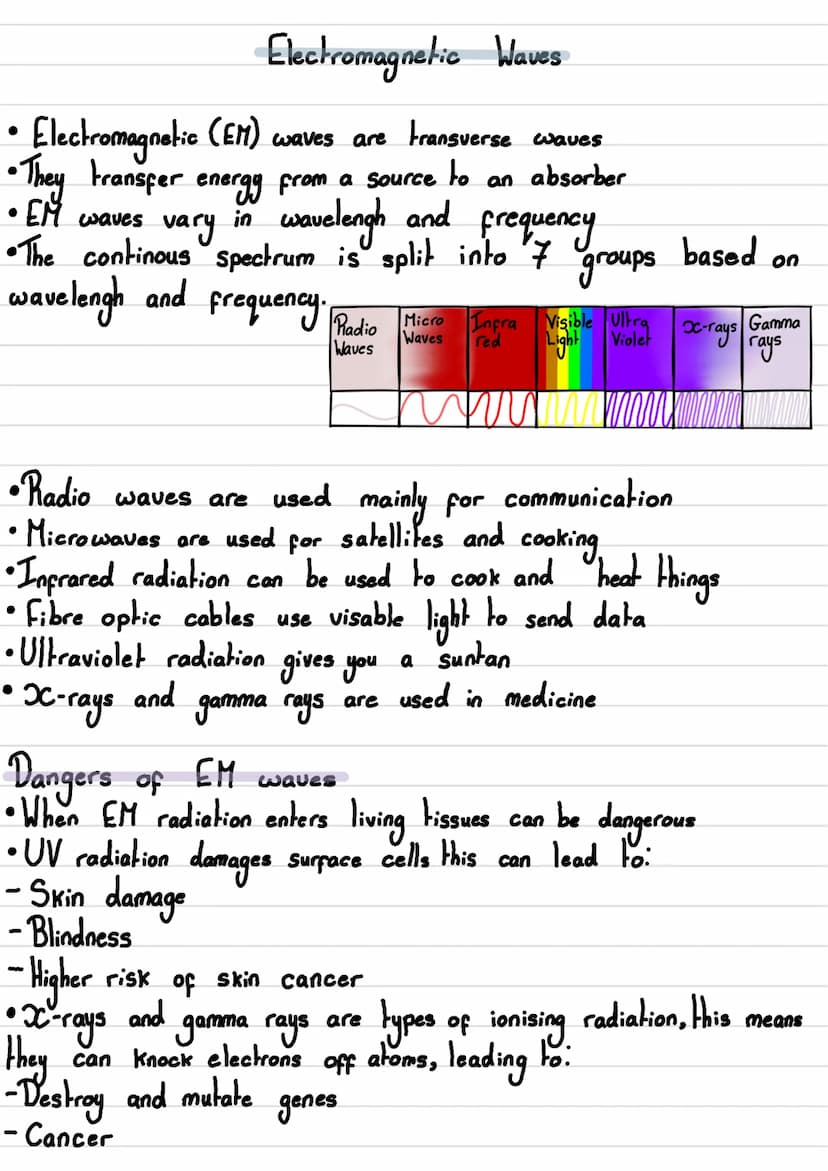 Electromagnetic Waves
• Electromagnetic (EM) waves are transverse waves
• They transfer energy from a source to an absorber
• EM waves vary in wavelengh and frequency
• The continous spectrum is split into 7 groups based on
wavelengh and frequency.
Radio Waves
Micro Waves
Infra red
Visible Light
Ultra Violet
x-rays
Gamma rays
• Radio waves are used mainly for communication
• Microwaves are used for satellites and cooking
• Infrared radiation can be used to cook and heat things
• Fibre optic cables use visable light to send data
• Ultraviolet radiation gives you a suntan
• x-rays and gamma rays are used in medicine
Dangers of EM waves
• When EM radiation enters living tissues can be dangerous
• UV radiation damages surface cells this can lead to:
- Skin damage
- Blindness
- Higher risk of skin cancer
• x-rays and gamma rays are types of ionising radiation, this means
they can knock electrons off atoms, leading to:
- Destroy and mutate genes
- Cancer